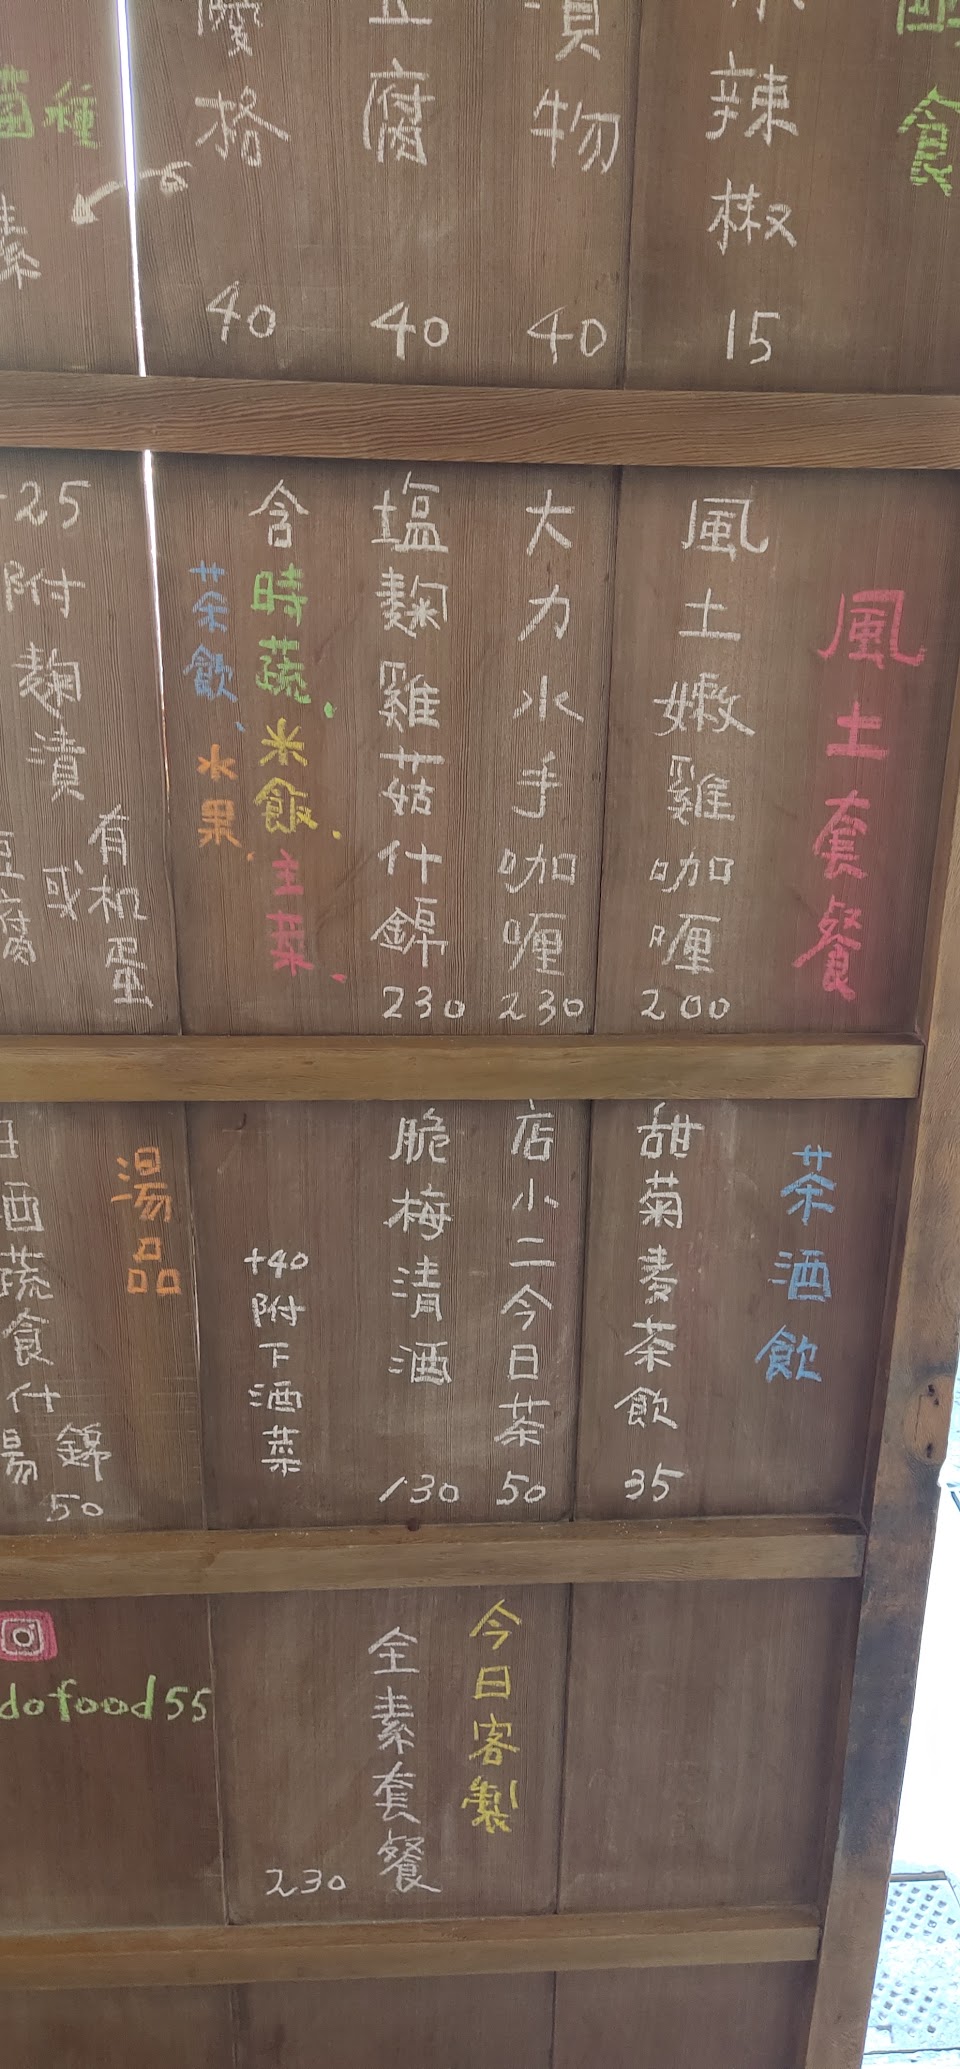 食
辣椒
15
物
40
腐
40
格
40
菌種
素
風土套餐
風土嫩雞咖喱
200
大力水手咖喱
230
塩麴雞菇什錦
230
含時蔬、米飯、主菜、
茶飲、水果、
有机蛋
或
25
附麴漬
豆腐
茶酒飲
甜菊麦茶飲
35
店小二今日茶
50
脆梅清酒
130
+40
附下酒菜
湯品
酒蔬食什錦湯
50
今日客製
全素套餐
230
dofood55